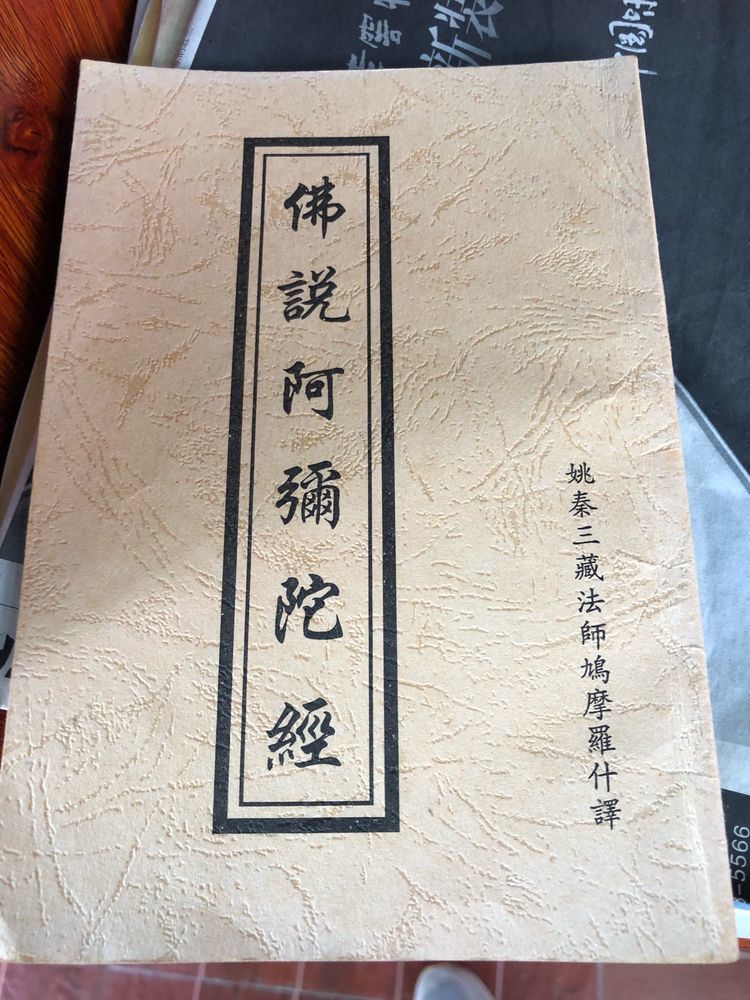 佛說阿彌陀經
姚秦三藏法師鳩摩羅什譯
新裝
中國
-5566